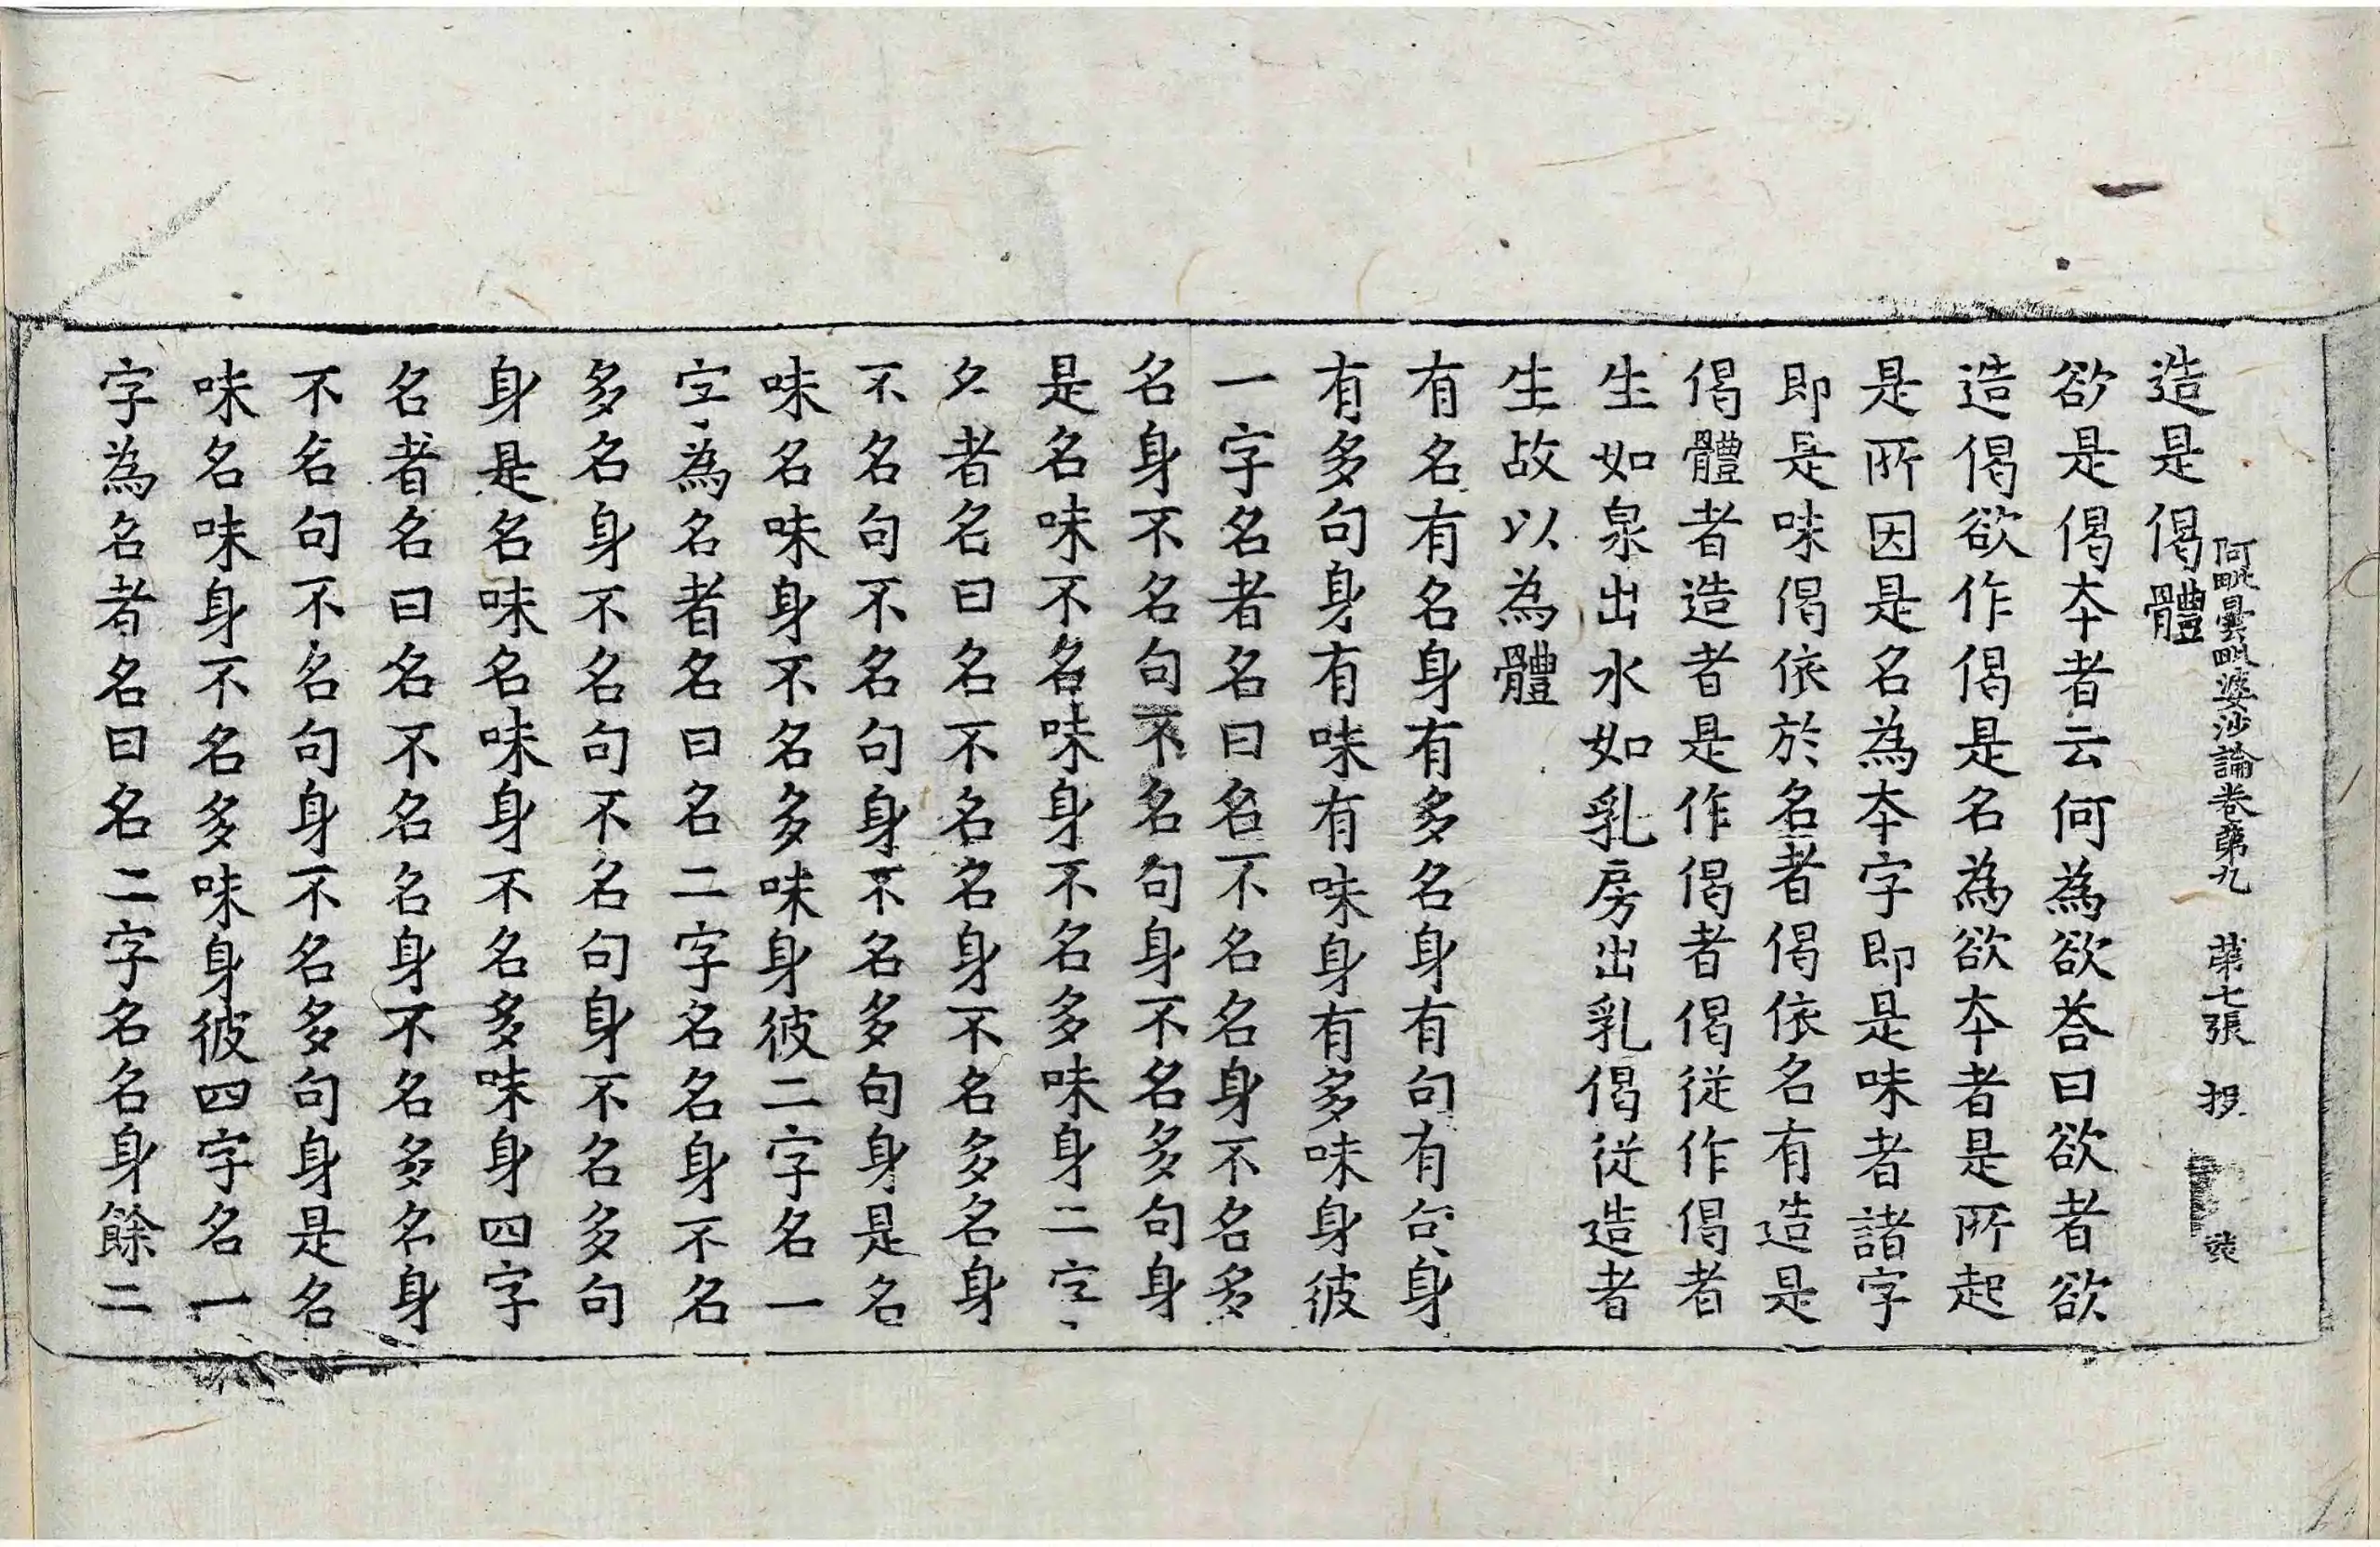 阿毗曇毗婆沙論卷第九　第七張　投
造是偈體
欲是偈夲者云何為欲荅曰欲者欲
造偈欲作偈是名為欲夲者是所起
是所因是名為夲字即是味者諸字
即是味偈依於名者偈依名有造是
偈體者造者是作偈者偈從作偈者
生如泉出水如乳房出乳偈從造者
生故以為體
有名有名身有多名身有句有句身
有多句身有味有味身有多味身彼
一字名者名曰名不名名身不名多
名身不名句不名句身不名多句身
是名味不名味身不名多味身二字
名者名曰名不名名身不名多名身
不名句不名句身不名多句身是名
味名味身不名多味身彼二字名一
字為名者名曰名二字名名身不名
多名身不名句不名句身不名多句
身是名味名味身不名多味身四字
名者名曰名不名名身不名多名身
不名句不名句身不名多句身是名
味名味身不名多味身彼四字名一
字為名者名曰名二字名名身餘二